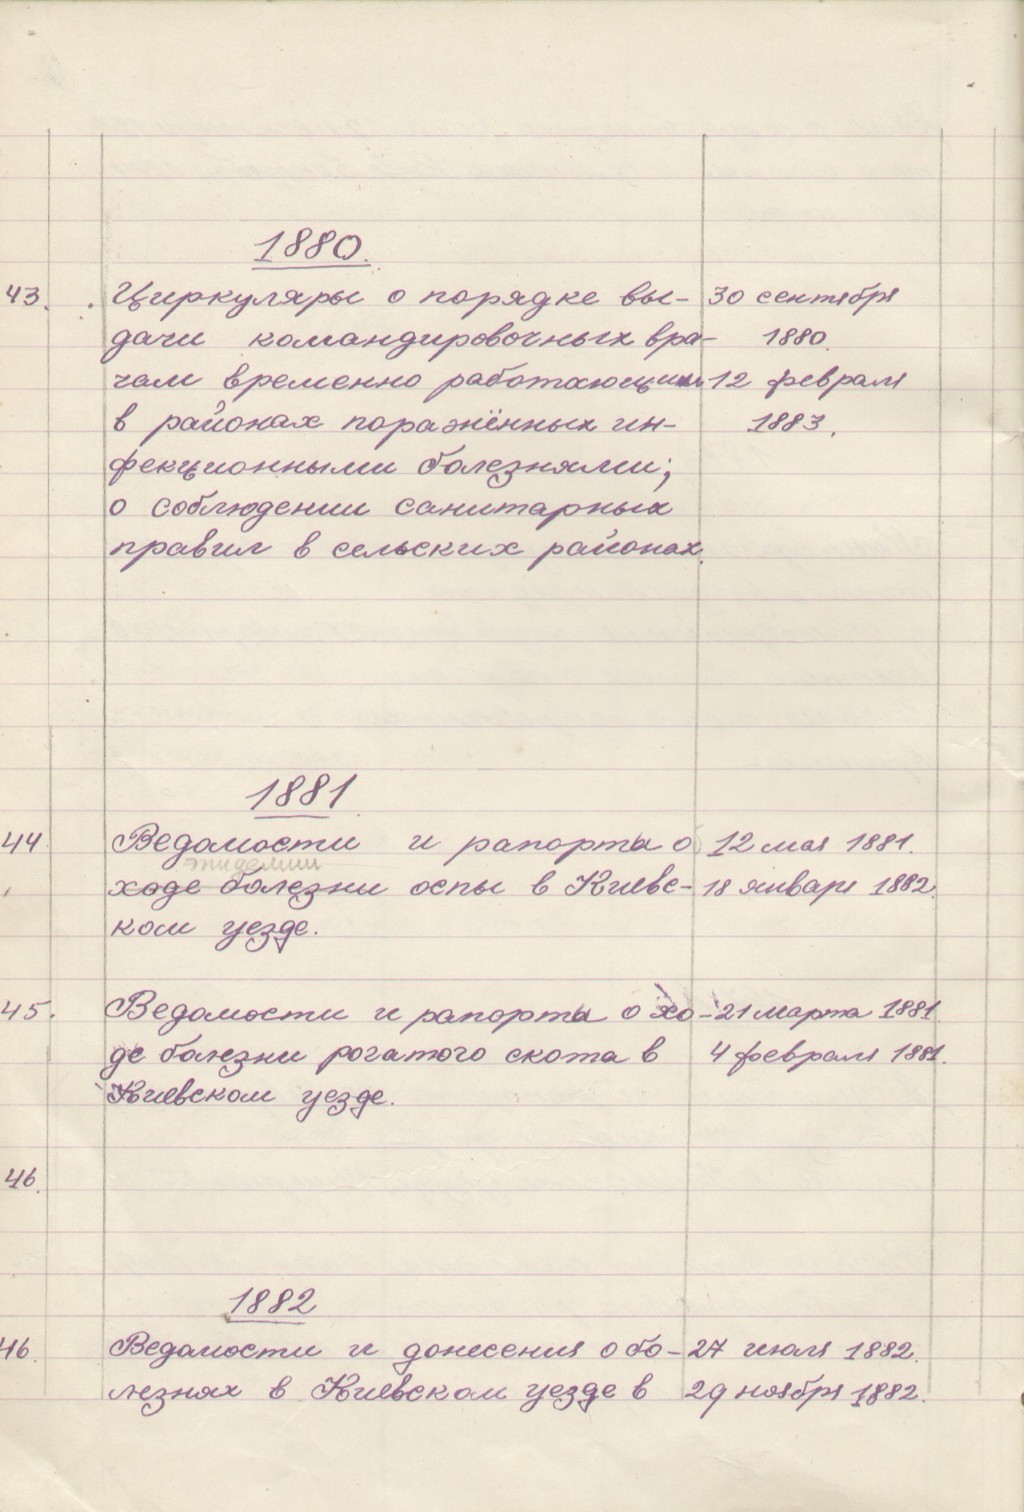 1880.
43. Циркуляры о порядке вы- 30 сентября
дачи командировочных вра- 1880.
чам временно работающим 12 февраля
в районах поражённых ин- 1883.
фекционными болезнями;
о соблюдении санитарных
правил в сельских районах.
1881
44. Ведомости и рапорта о 12 мая 1881.
эпидемии
ходе болезни оспы в Киевс- 18 января 1882.
ком уезде.
45. Ведомости и рапорта о хо- 21 марта 1881.
де болезни рогатого скота в 4 февраля 1881.
Киевском уезде.
46.
1882
46. Ведомости и донесения о бо- 27 июля 1882.
лезнях в Киевском уезде в 29 ноября 1882.